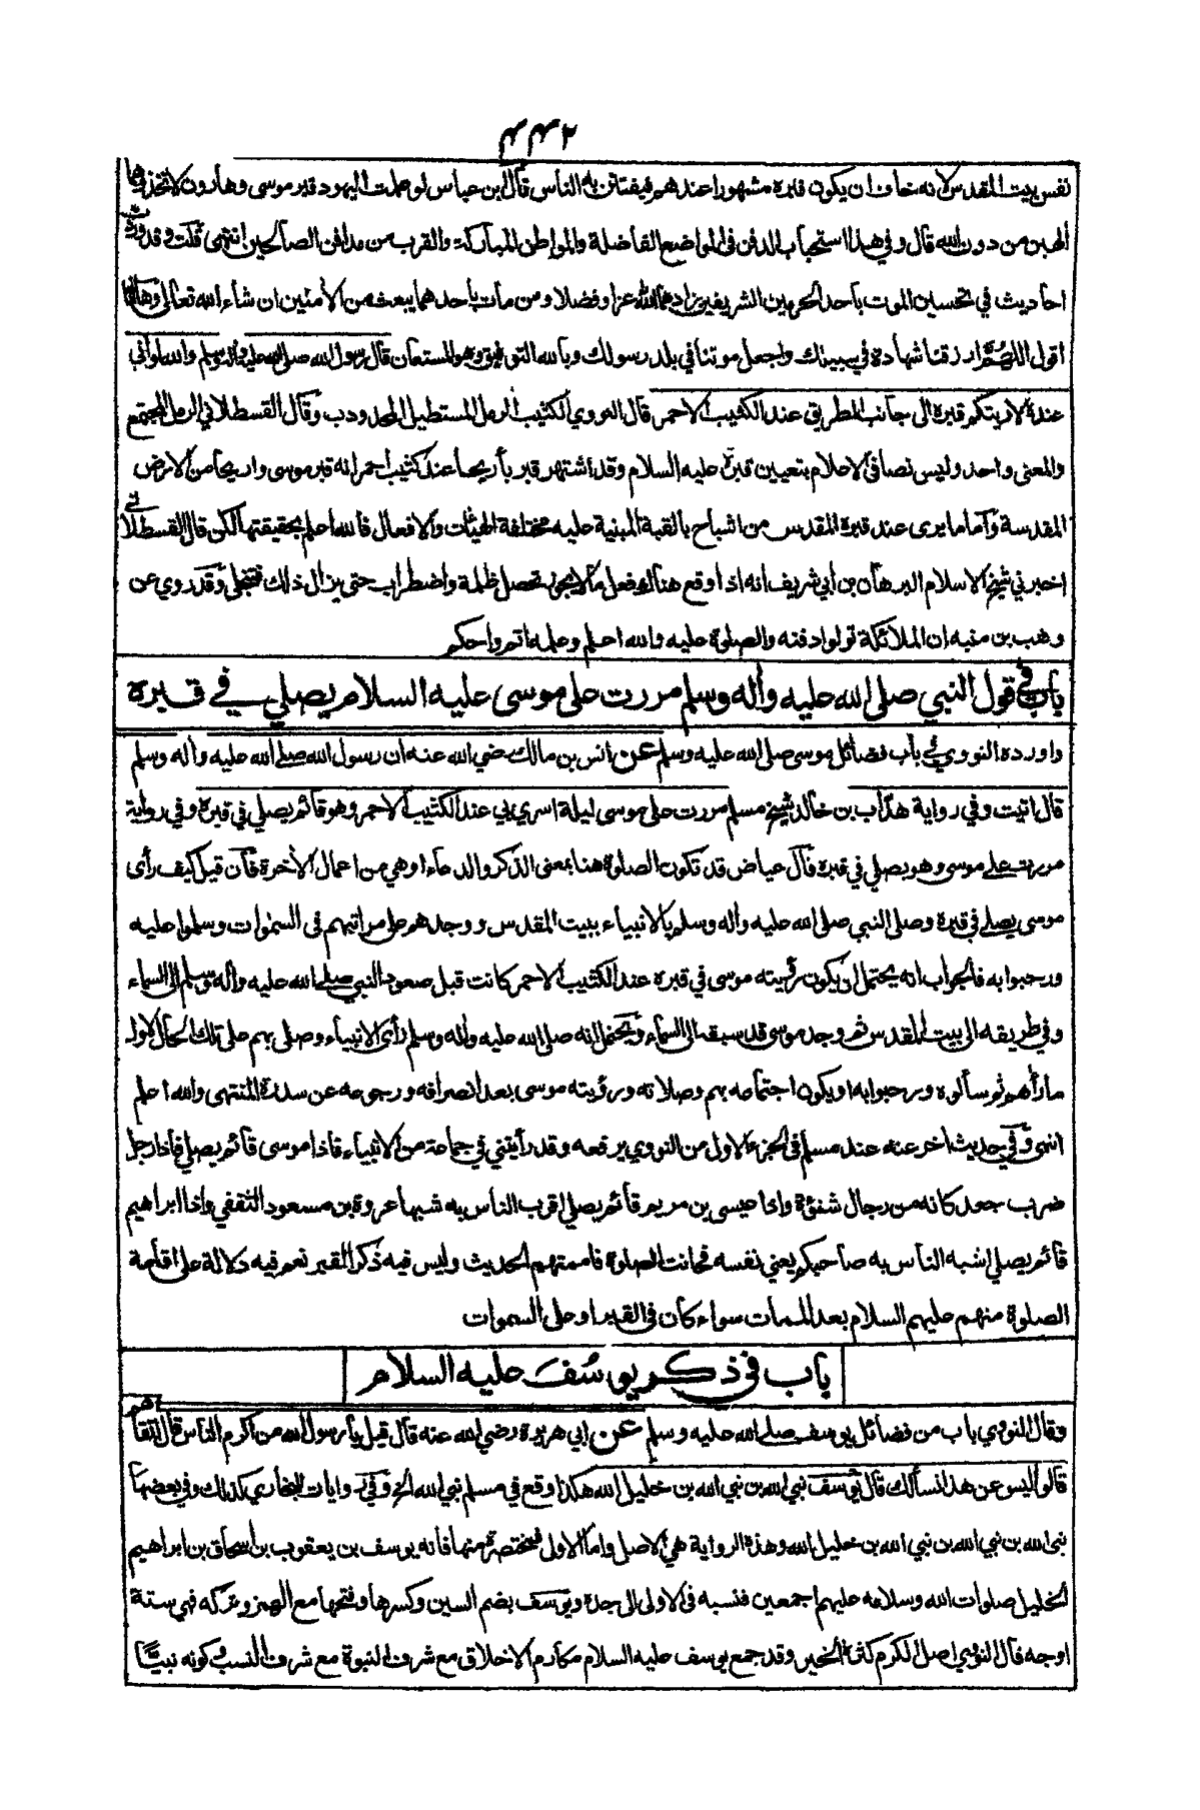 ٢٣٣
نفس بيت المقدس لانه خاف ان يكون قبره مشهورا عندهم فيفتتن به الناس قال ابن عباس لو علمت اليهود قبر موسى وهارون لاتخذوهما
الهين من دون الله قال وفي هذا استحباب الدفن في المواضع الفاضلة والمواطن المباركة والقرب من مدافن الصالحين انتهى قلت وقد وردت
احاديث في تحسين الموت باحد الحرمين الشريفين زادهما الله عزا وفضلا ومن مات باحدهما يبعث من الأمنين ان شاء الله تعالى وها انا
اقول اللهم ارزقنا شهادة في سبيلك واجعل موتنا في بلد رسولك وبالله التوفيق وهو المستعان قال رسول الله صلى الله عليه وأله وسلم والله لو اني
عنده لاريتكم قبره الى جانب الطريق عند الكثيب الاحمر قال النووي الكثيب الرمل المستطيل المحدودب وقال القسطلاني الرمل المجتمع
والمعنى واحد وليس نصا في الاعلام بتعيين قبره عليه السلام وقد اشتهر قبر بأريحا عند كثيب احمر انه قبر موسى واريحا من الارض
المقدسة وأما ما يرى عند قبره المقدس من اشباح بالقبة المبنية عليه مختلفة الهيئات والافعال فالله اعلم بحقيقتها لكن قال القسطلاني
اخبرني شيخ الاسلام البرهان بن ابي شريف انه اذا وقع هناك فعل ما لا يجوز تحصل ظلمة واضطراب حتى يزال ذلك فتنجلي وقد روي عن
وهب بن منبه ان الملائكة تولوا دفنه والصلوة عليه والله اعلم وعلمه اتم واحكم
باب في قول النبي صلى الله عليه وأله وسلم مررت على موسى عليه السلام يصلي في قبره
واورده النووي في باب فضائل موسى صلى الله عليه وسلم عن انس بن مالك رضي الله عنه ان رسول الله صلى الله عليه وأله وسلم
قال اتيت وفي رواية هداب بن خالد شيخ مسلم مررت على موسى ليلة اسري بي عند الكثيب الاحمر وهو قائم يصلي في قبره وفي رواية
مررت على موسى وهو يصلي في قبره قال عياض قد تكون الصلوة هنا بمعنى الذكر والدعاء او هي من اعمال الأخرة قال فان قيل كيف رأى
موسى يصلي في قبره وصلى النبي صلى الله عليه وأله وسلم بالانبياء ببيت المقدس ووجدهم على مراتبهم في السموات وسلموا عليه
ورحبوا به فالجواب انه يحتمل ان يكون رؤيته موسى في قبره عند الكثيب الاحمر كانت قبل صعود النبي صلى الله عليه وأله وسلم الى السماء
وفي طريقه الى بيت المقدس ثم وجد موسى قد سبقه الى السماء ويحتمل انه صلى الله عليه وأله وسلم رأى الانبياء وصلى بهم على تلك الحال لاول
ما رأهم ثم سألوه ورحبوا به او يكون اجتماعه بهم وصلاته ورؤيته موسى بعد انصرافه ورجوعه عن سدرة المنتهى والله اعلم
انتهى وفي حديث اخر عنه عند مسلم في الجزء الاول من النووي يرفعه وقد رأيتني في جماعة من الانبياء فاذا موسى قائم يصلي فاذا رجل
ضرب جعد كانه من رجال شنؤة واذا عيسى بن مريم قائم يصلي اقرب الناس به شبها عروة بن مسعود الثقفي واذا ابراهيم
قائم يصلي اشبه الناس به صاحبكم يعني نفسه فحانت الصلوة فاممتهم الحديث وليس فيه ذكر القبر نعم فيه دلالة على اقامة
الصلوة منهم عليهم السلام بعد الممات سواء كان في القبر او على السموات
باب في ذكر يوسف عليه السلام
وقال النووي باب من فضائل يوسف صلى الله عليه وسلم عن ابي هريرة رضي الله عنه قال قيل يا رسول الله من اكرم الناس قال اتقاهم
قالوا ليس عن هذا نسألك قال يوسف نبي الله بن نبي الله بن خليل الله هكذا وقع في مسلم نبي الله الخ وفي روايات البخاري كذلك وفي بعضها
نبي الله بن نبي الله بن نبي الله بن خليل الله وهذه الرواية هي الاصل واما الاولى فمختصرة منها فانه يوسف بن يعقوب بن اسحاق بن ابراهيم
الخليل صلوات الله وسلامه عليهم اجمعين فنسبه في الاولى الى جده ويوسف بضم السين وكسرها وفتحها مع الهمز وتركه فهي ستة
اوجه قال النووي اصل الكرم كثرة الخير وقد جمع يوسف عليه السلام مكارم الاخلاق مع شرف النبوة مع شرف النسب وكونه نبيا